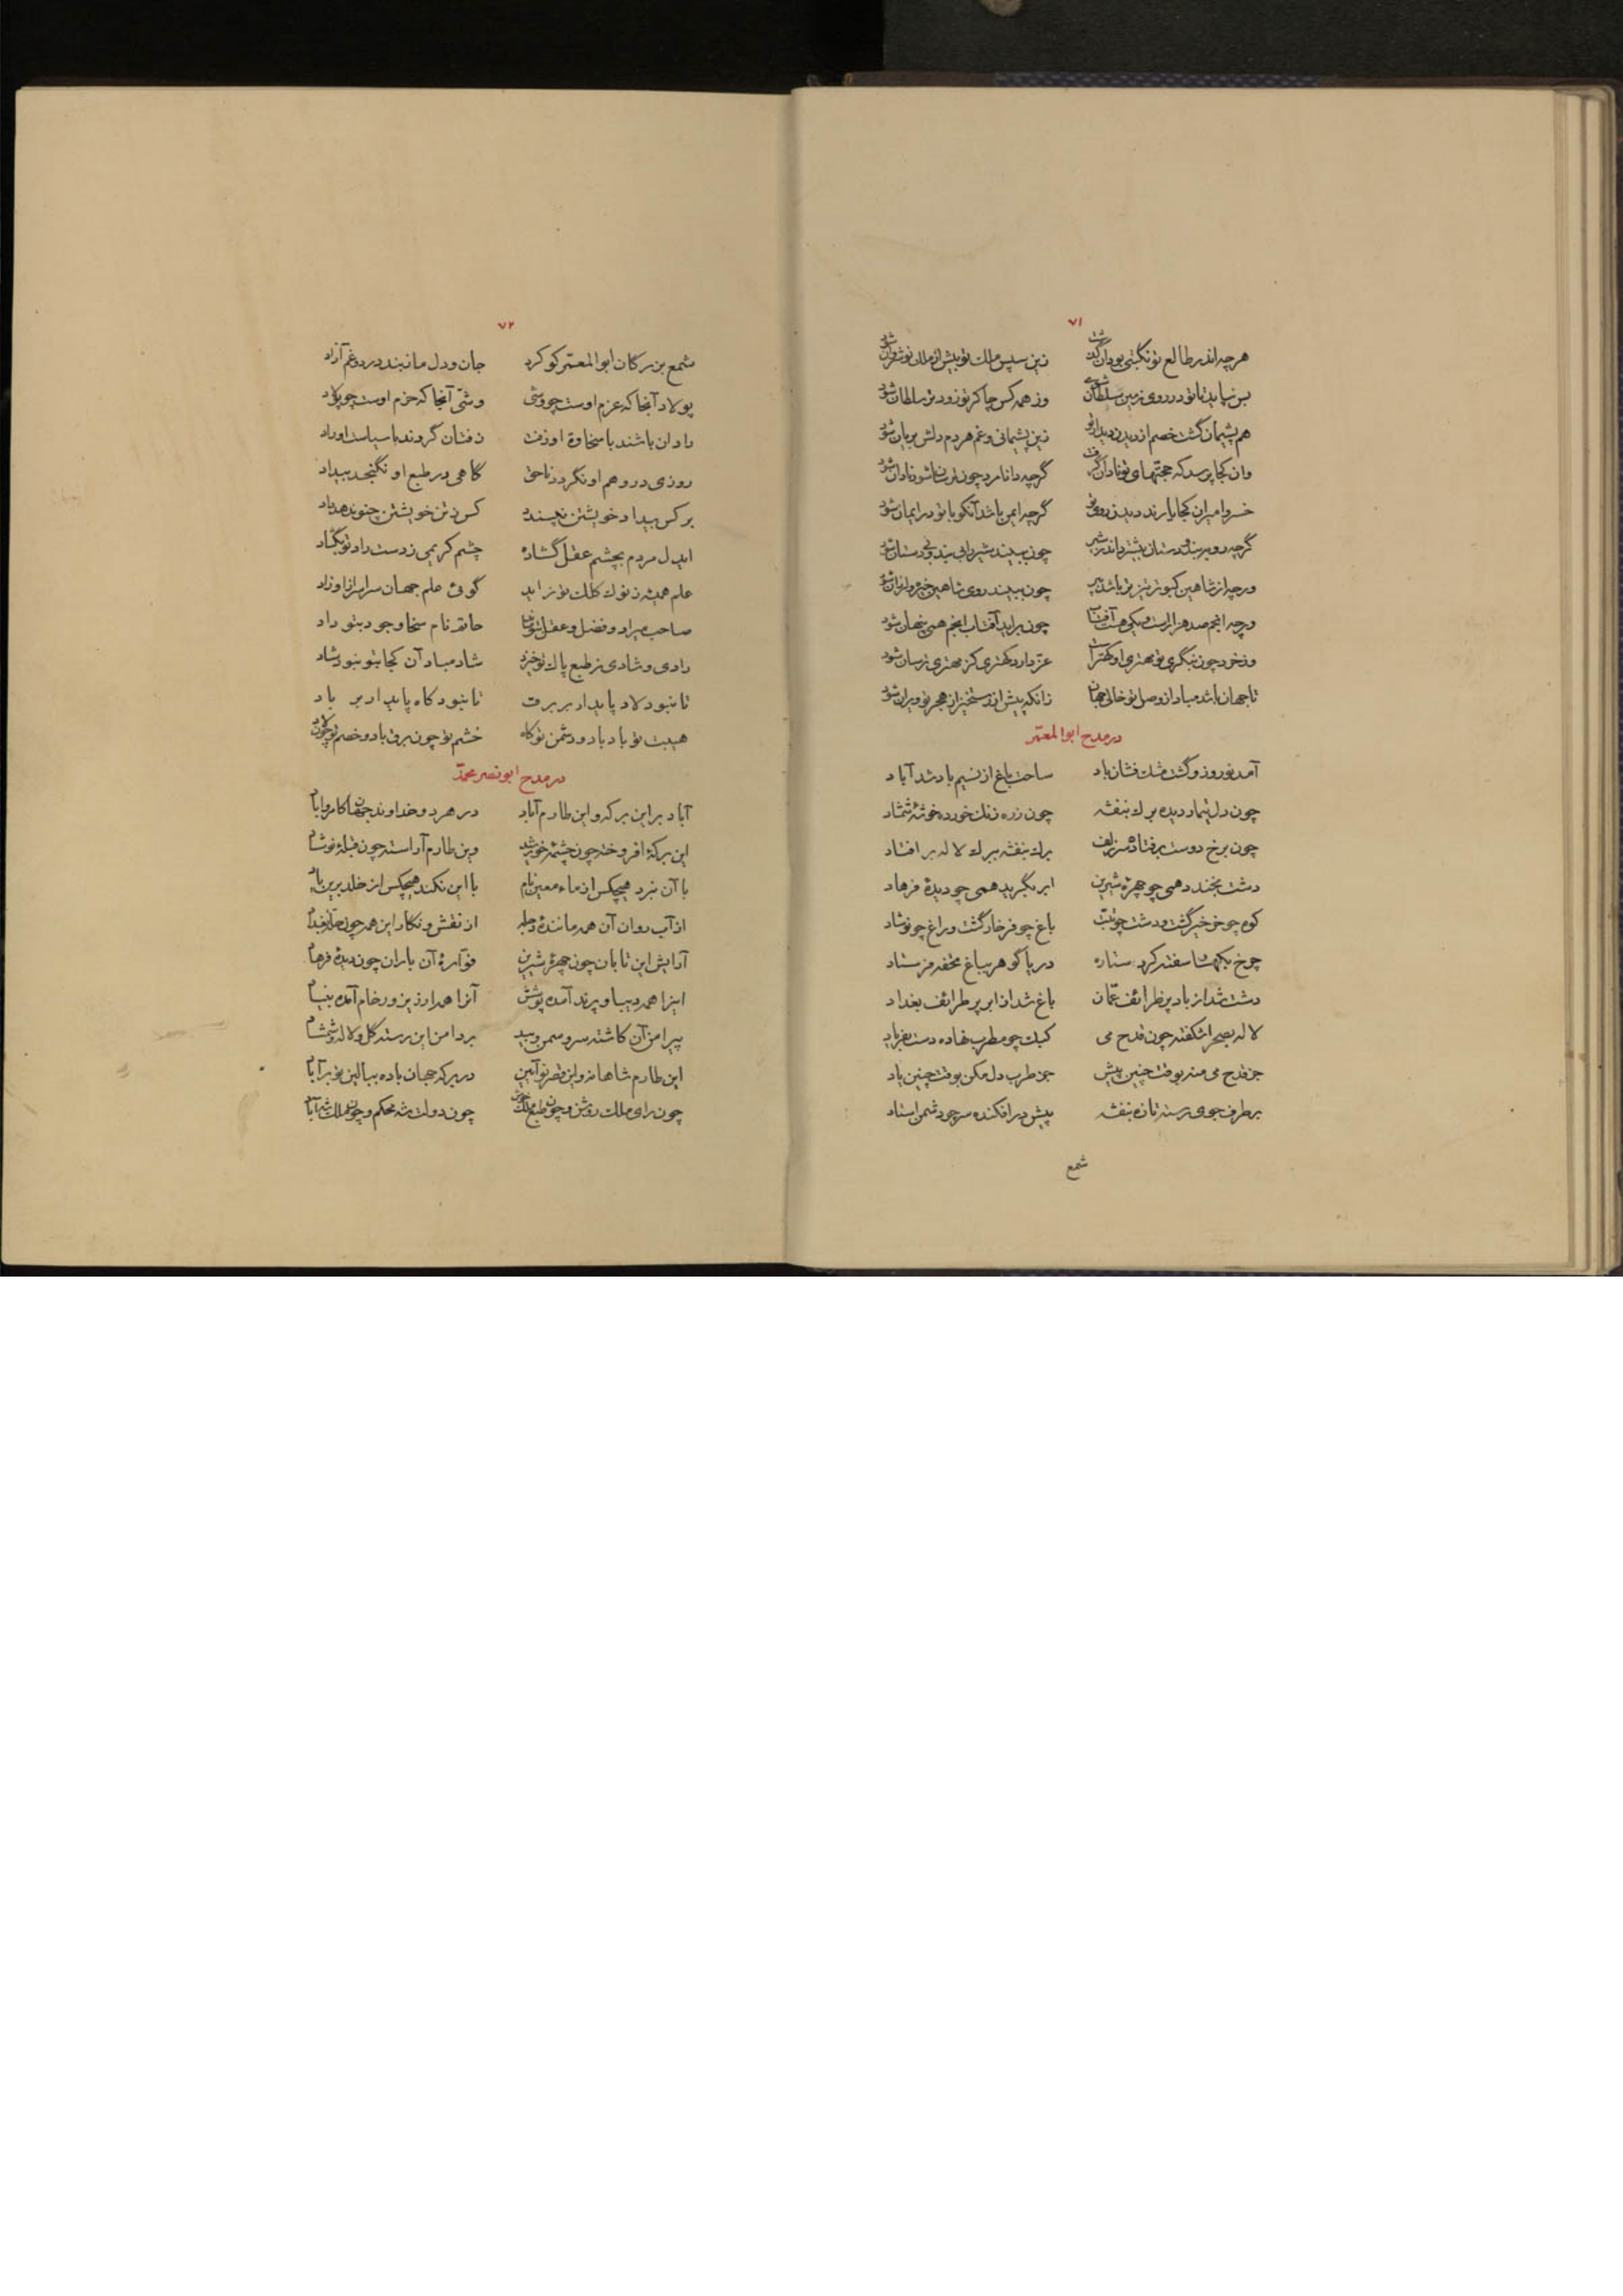 ۷۱
هرچه اندر طالع تو نگبتی بود آن گذشت زین سپس ملك تو بیش از ملك نوشروان شود
بس نپاید تا تو در روی زمین سلطان شوی وز همه کس چاکر تو زودتر سلطان شود
هم پشیمان گشت خصم از دیدن دیدار تو زین پشیمانی و غم هر دم دلش بریان شود
وان کجا پرسد که حجتهای تو نادان گرفت گرچه دانا مرد چون ترسان شود نادان شود
خسروا میران کجا یارند دیدن روی تو گرچه ایمن باشد آنکو با تو در ایمان شود
گرچه روبه بند و دستان بیشتر داند ز شیر چون ببیند شیر دانی بیند و بی دستان شود
ورچه از شاهین کبوتر تیز تر باشد بپر چون ببیند روی شاهین خیره و لرزان شود
ورچه انجم صد هزار است و یکی هست آفتاب چون براید آفتاب انجم همی پنهان شود
وز خرد چون بنگری تو مهتری او کهتر است عز دارد کهتری کز مهتری ترسان شود
تا جهان باشد مبادا از وصل تو خالی جهان زانکه پیش از رستخیز از هجر تو ویران شود
در مدح ابوالمعمّر
آمد نوروز و گشت مشك فشان باد ساحت باغ از نسیم باد شد آباد
چون دل تیمار دیده برك بنفشه چون زره زنك خورده خوشهٔ شمشاد
چون برخ دوست بر فتاده سر زلف برك بنفشه ببرك لاله بر افتاد
دشت بخندد همی چو چهرهٔ شیرین ابر بگرید همی چو دیدهٔ فرهاد
کوه چو خرخیز گشت و دشت چو تبّت باغ چو فرخار گشت و راغ چو نوشاد
چرخ بکهسا سفته کرد ستاره دریا گوهر بباغ تحفه فرستاد
دشت شد از باد پر طرائف عمّان باغ شد از ابر پر طرائف بغداد
لاله بصحرا شکفته چون قدح می کبك چو مطرب نهاده دست بفریاد
جز قدح می منه بوقت چنین پیش جز طرب دل مکن بوقت چنین یاد
بر طرف جوی رسته تازه بنفشه پیش در افکنده سر چو دشمن استاد
شمع
۷۲
شمع بزرگان ابوالمعمّر کو کرد جان و دل ما ز بند درد و غم آزاد
پولاد آنجا که عزم اوست چو وشی وشّی آنجا که حزم اوست چو پولاد
رادان باشند با سخاوة او زفت زفتان گردند با سیاست او راد
روزی در وهم او نگردد ناحق گاهی در طبع او نگنجد بیداد
بر کس بیداد خویشتن نپسندد کس ز تن خویشتن چنو ندهد داد
ای دل مردم بچشم عقل گشاده چشم کریمی ز دست راد تو بگشاد
علم همیشه ز نوك کلك تو زاید گوئی علم جهان سراسر ازاو زاد
صاحب میراد و فضل و عقل تو حاتم نام سخا و جود بتو داد
رادی و شادی ز طبع پاك تو خیزد شاد مباد آن کجا بتو نبود شاد
تا نبود لاد پایدار بر برق تا نبود کاه پایدار بر باد
هیبت تو باد باد و دشمن تو کاه خشم تو چون برق باد و خصم تو چون لاد
در مدح ابونصر محمّد
آباد بر این برکه و این طارم آباد در هر دو خداوند جهان کامروا باد
این برکهٔ افروخته چون چشمهٔ خورشید وین طارم آراسته چون قبلهٔ نوشاد
با آن نبرد هیچکس از ماء معین نام با این نکند هیچکس از خلد برین یاد
از آب روان آن همه مانندهٔ دجله از نقش و نگار این همه چون حلهٔ بغداد
آرایش این تابان چون چهرهٔ شیرین فوّارهٔ آن باران چون دیدهٔ فرهاد
اینرا همه دیبا و پرند آمده پوشش آنرا همه ارزیز و رخام آمده بنیاد
پیرامن آن کاشته سرو و سمن و بید بر دامن این رسته گل و لاله و شمشاد
این طارم شاهانه و این قصر نو آیین در برکه جهان باده ببالین تو بر آباد
چون رای ملك روشن و چون طبع ملك خوش چون دولت شه محکم و چون ملك شه آباد